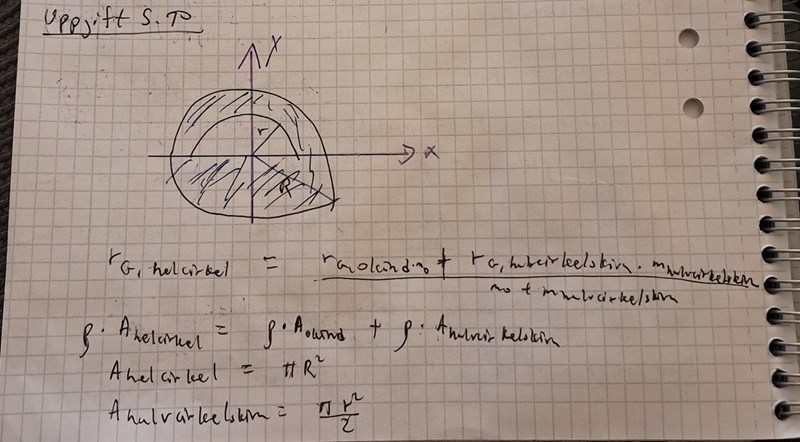 Uppgift 5.70
y
r
x
R
r_G,helcirkel = (r_G,okänd · m_0 + r_G,halvcirkelskiva · m_halvcirkelskiva) / (m_0 + m_halvcirkelskiva)
ρ · A_helcirkel = ρ · A_okänd + ρ · A_halvcirkelskiva
A_helcirkel = πR²
A_halvcirkelskiva = πr²/2